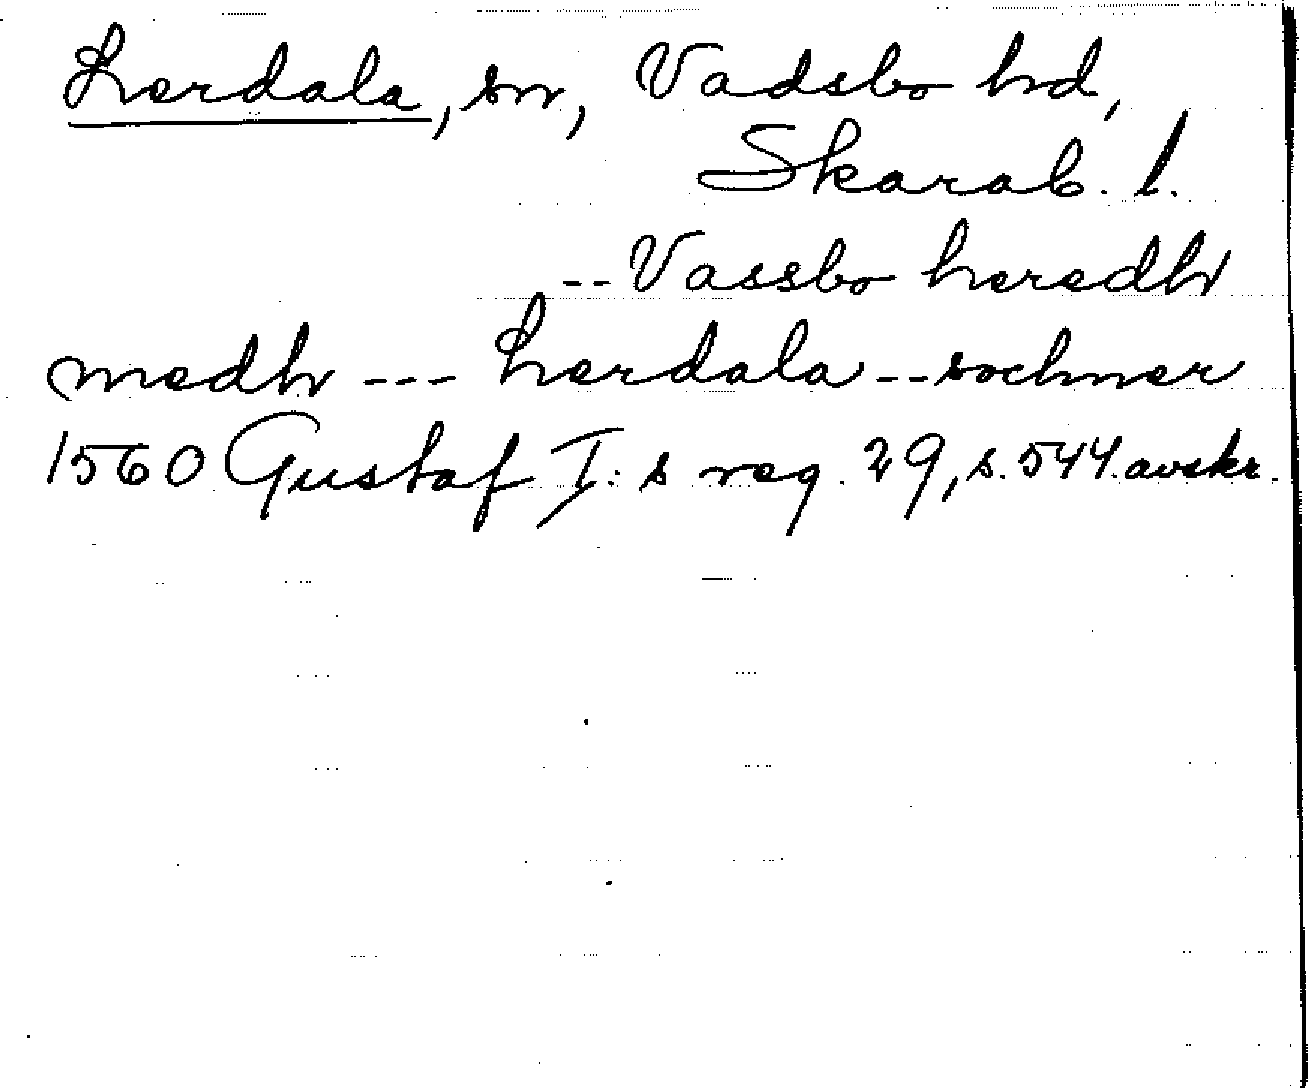 Lerdala, sn, Vadsbo hd,
Skarab. l.
-- Vassbo heredh
medh --- Lerdala -- sochner
1560 Gustaf I:s reg. 29, s. 544. avskr.